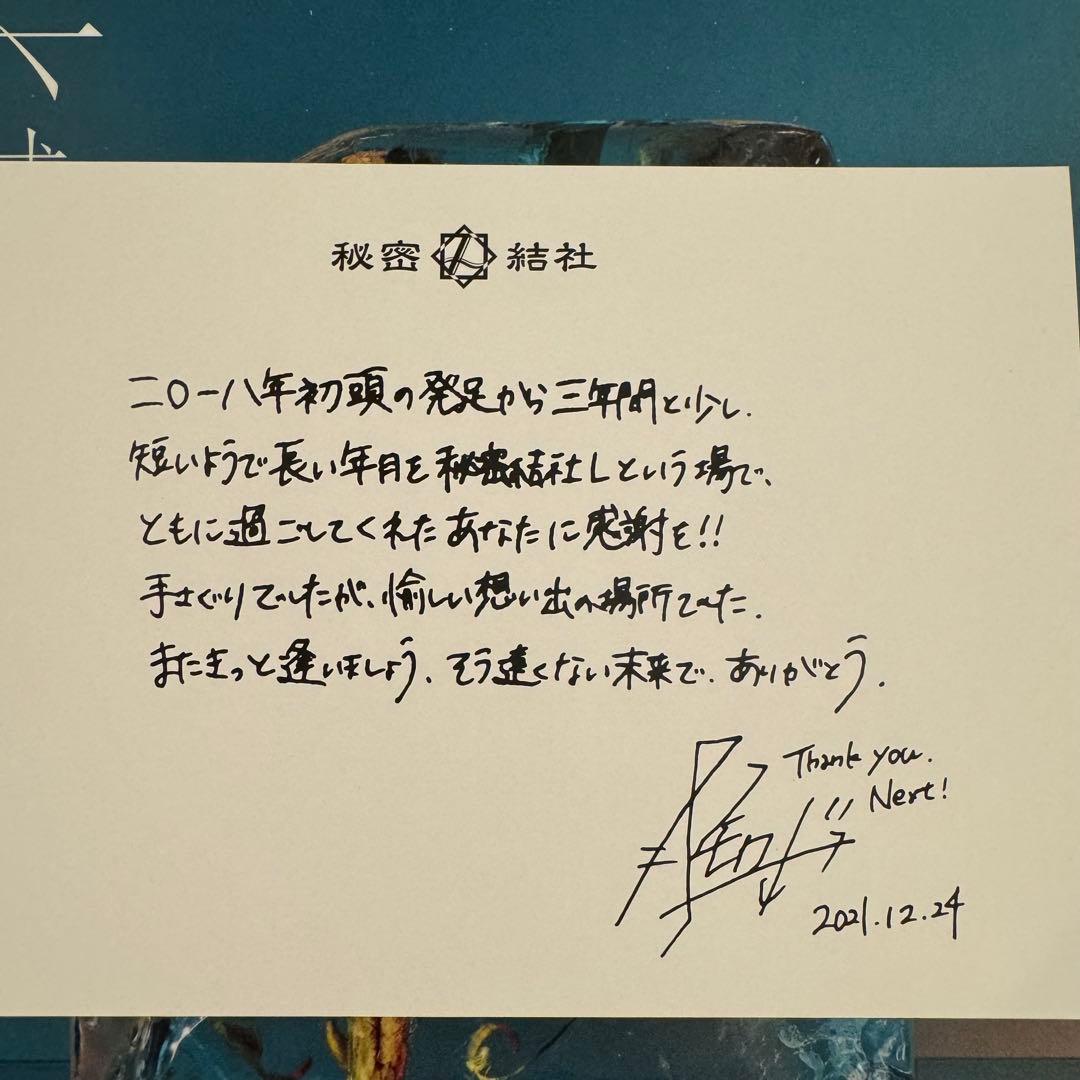 秘密 結社
二〇一八年初頭の発足から三年間と少し、
短いようで長い年月を秘密結社Lという場で、
ともに過ごしてくれたあなたに感謝を!!
手さぐりでしたが、愉しい想い出の場所でした。
またきっと逢いましょう、そう遠くない未来で。ありがとう。
Thank you.
Next!
2021.12.24